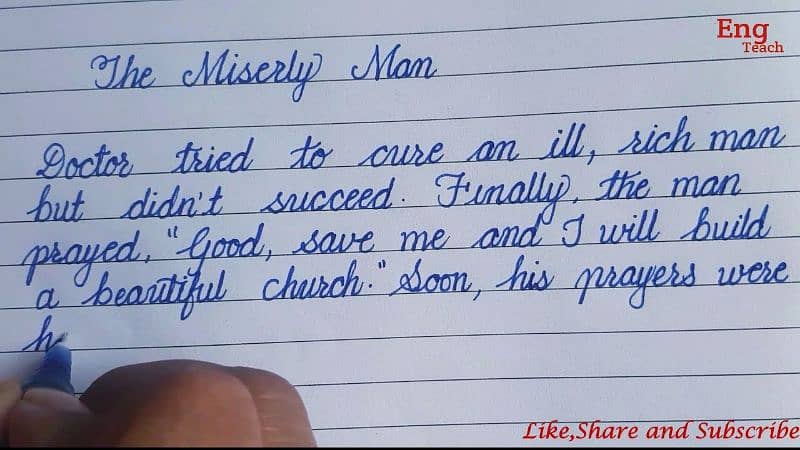 Eng
Teach
The Miserly Man
Doctor tried to cure an ill, rich man
but didn't succeed. Finally, the man
prayed, "Good, save me and I will build
a beautiful church." Soon, his prayers were
h
Like,Share and Subscribe